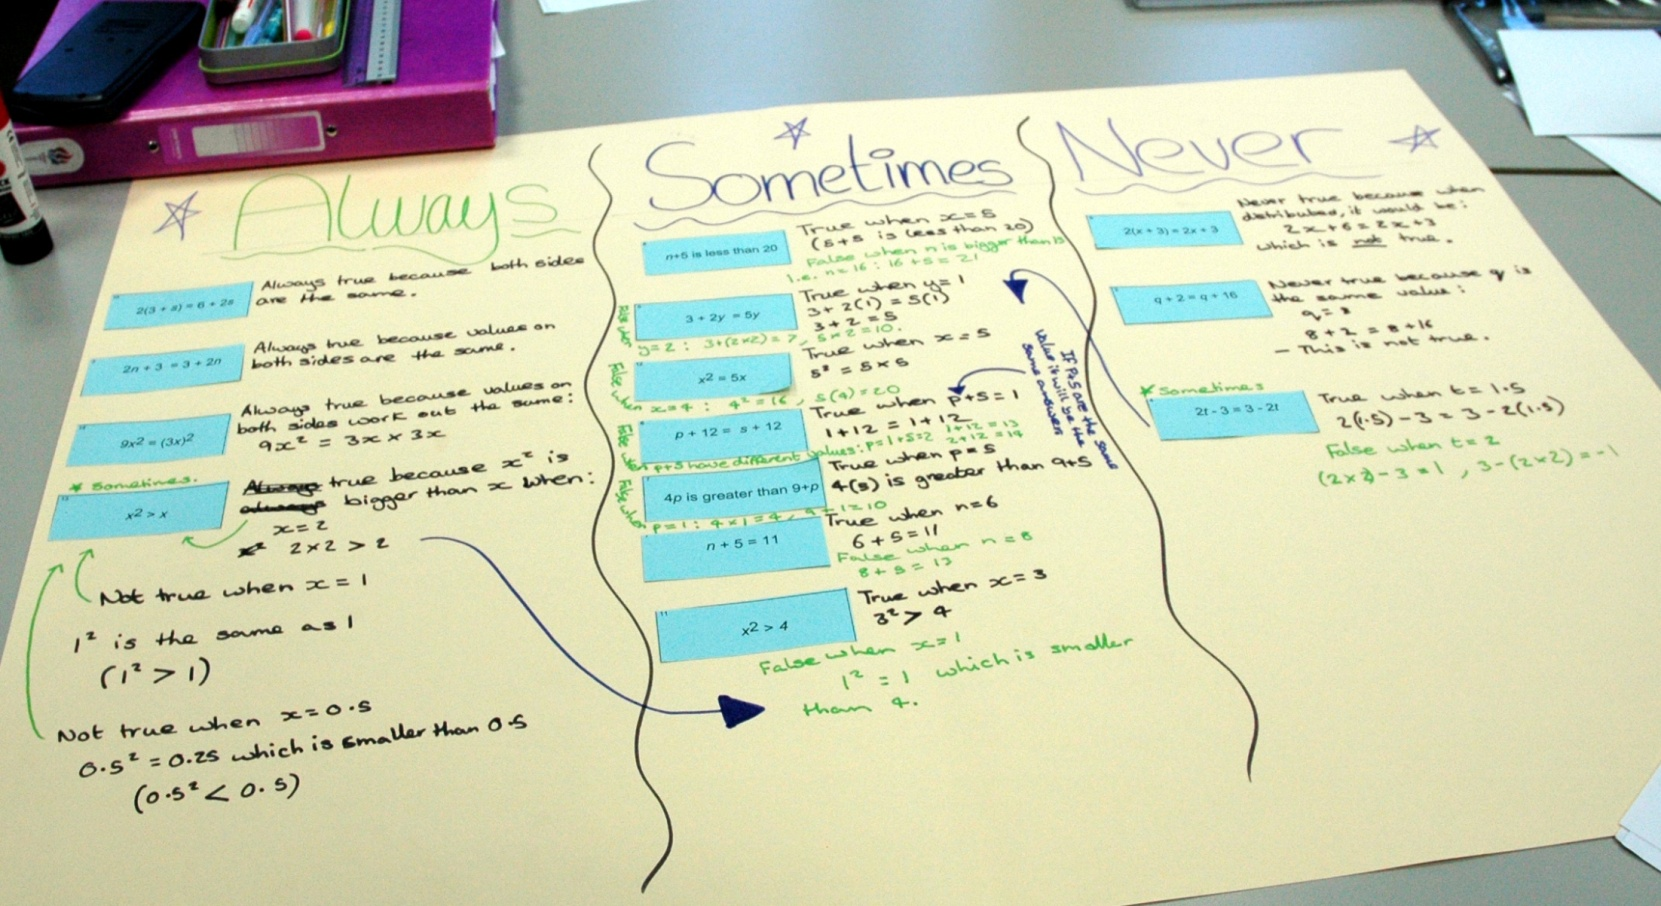 Always
2(3 + s) = 6 + 2s
Always true because both sides
are the same.
2n + 3 = 3 + 2n
Always true because values on
both sides are the same.
9x2 = (3x)2
Always true because values on
both sides work out the same:
9x² = 3x × 3x
* Sometimes.
x2 > x
Always true because x² is
always bigger than x when:
x = 2
x² 2×2 > 2
Not true when x = 1
1² is the same as 1
(1² > 1)
Not true when x = 0.5
0.5² = 0.25 which is smaller than 0.5
(0.5² < 0.5)
Sometimes
n+5 is less than 20
True when x = 5
(5+5 is less than 20)
False when n is bigger than 15
i.e. n = 16 : 16 + 5 = 21
3 + 2y = 5y
True when y = 1
3 + 2(1) = 5(1)
3 + 2 = 5
False when
y = 2 : 3+(2×2) = 7, 5×2 = 10.
x2 = 5x
True when x = 5
5² = 5×5
False when
x = 4 : 4² = 16, 5(4) = 20
p + 12 = s + 12
True when p+s = 1
1+12 = 1+12
False
when p+s have different values: p=1+s=2
1+12 = 13
2+12 = 14
If p+s are the same
value it will be the
same answers
4p is greater than 9+p
True when p = 5
4(5) is greater than 9+5
False when
p = 1 : 4×1 = 4, 9+1 = 10
n + 5 = 11
True when n = 6
6+5 = 11
False when n = 8
8 + 5 = 13
11
x2 > 4
True when x = 3
3² > 4
False when x = 1
1² = 1 which is smaller
than 4.
Never
2(x + 3) = 2x + 3
Never true because when
distributed, it would be:
2x + 6 = 2x + 3
which is not true.
q + 2 = q + 16
Never true because q is
the same value:
q = 8
8 + 2 = 8 + 16
– This is not true.
* Sometimes
2t - 3 = 3 - 2t
True when t = 1.5
2(1.5) – 3 = 3 – 2(1.5)
False when t = 2
(2×2) – 3 = 1 , 3 – (2×2) = -1